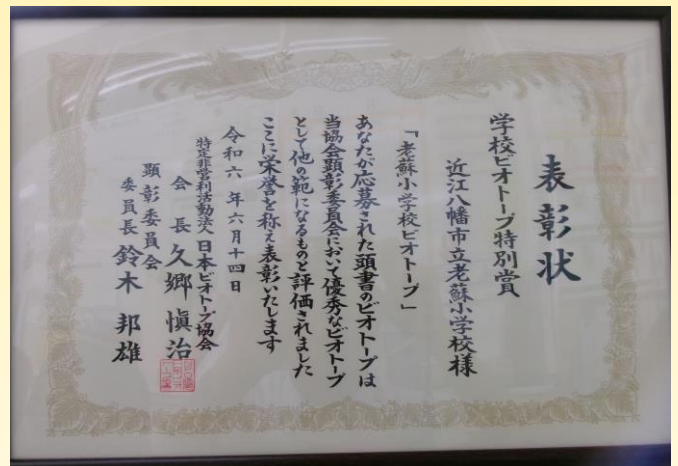 表彰状
学校ビオトープ特別賞
近江八幡市立老蘇小学校様
「老蘇小学校ビオトープ」
あなたが応募された頭書のビオトープは
当協会顕彰委員会において優秀なビオトープ
として他の範になるものと評価されました
ここに栄誉を称え表彰いたします
令和六年六月十四日
特定非営利活動法人日本ビオトープ協会
会長久郷愼治
顕彰委員会
委員長鈴木邦雄